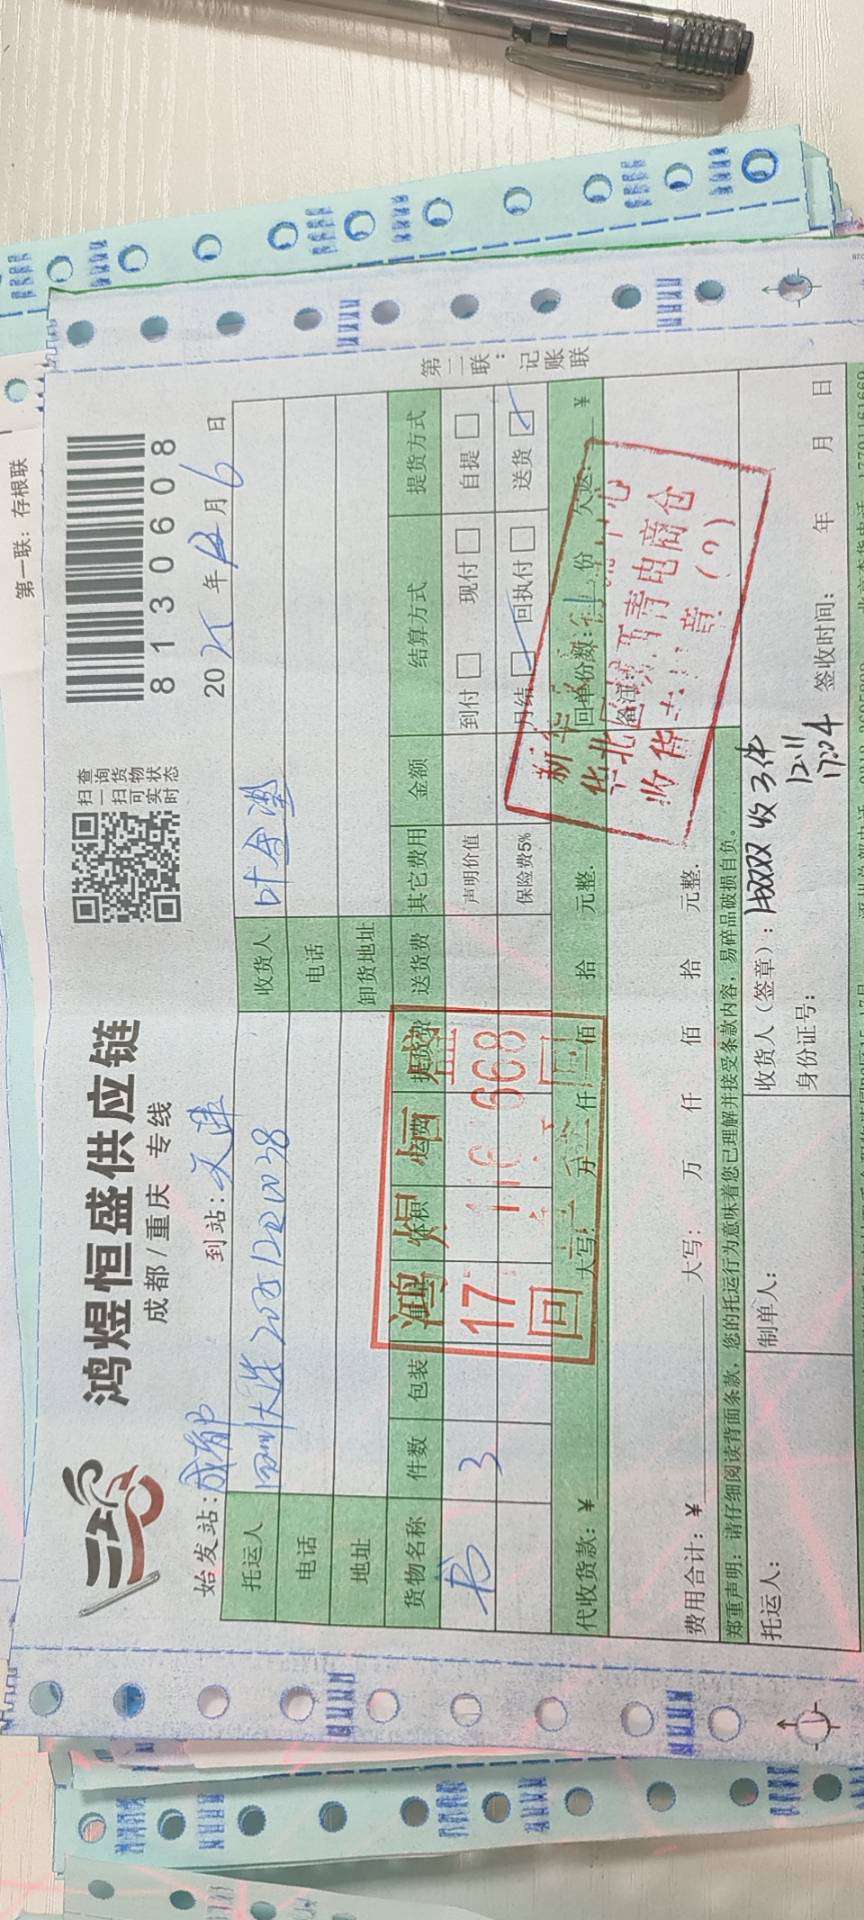 第一联：存根联
鸿煜恒盛供应链
成都/重庆 专线
扫一扫
查询货物
可实时状态
8130608
始发站：成都
到站：天津
2025年12月6日
托运人
收货人
叶金滟
电话
电话
地址
卸货地址
货物名称 件数 包装 体积 运费 提货费 送货费 其它费用 金额 结算方式 提货方式
书 3 声明价值 到付 现付 自提
保险费5% 月结 回执付 送货
代收货款：¥ 大写： 万 仟 佰 拾 元整. 回单份数： 份 欠返： ¥
费用合计：¥ 大写： 万 仟 佰 拾 元整. 备注：
郑重声明：请仔细阅读背面条款，您的托运行为意味着您已理解并接受条款内容，易碎品破损自负。
托运人：
制单人：
收货人（签章）： 收3件
12.11
17:04
身份证号：
签收时间： 年 月 日
第二联：记账联
鸿煜恒盛
回
新华
华北 电商仓
收货 章